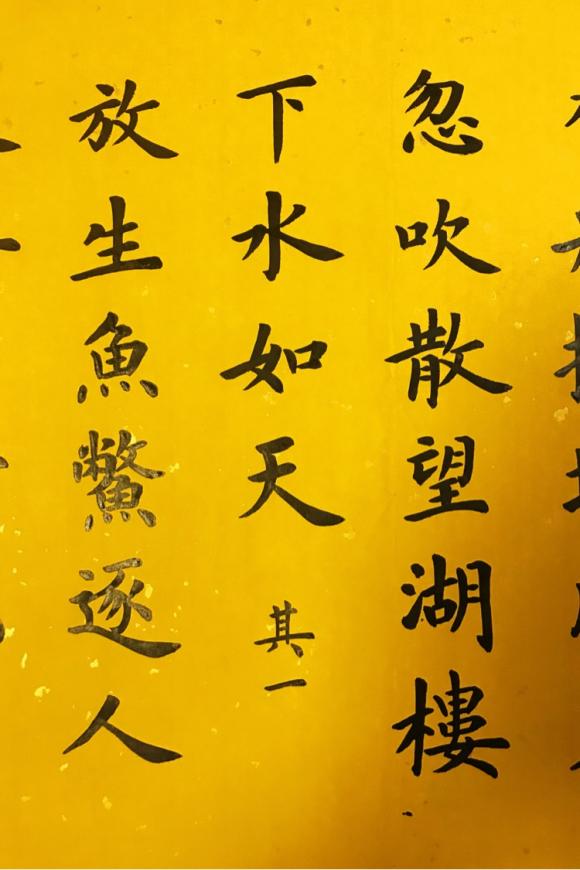 忽吹散望湖樓
下水如天 其一
放生魚鱉逐人